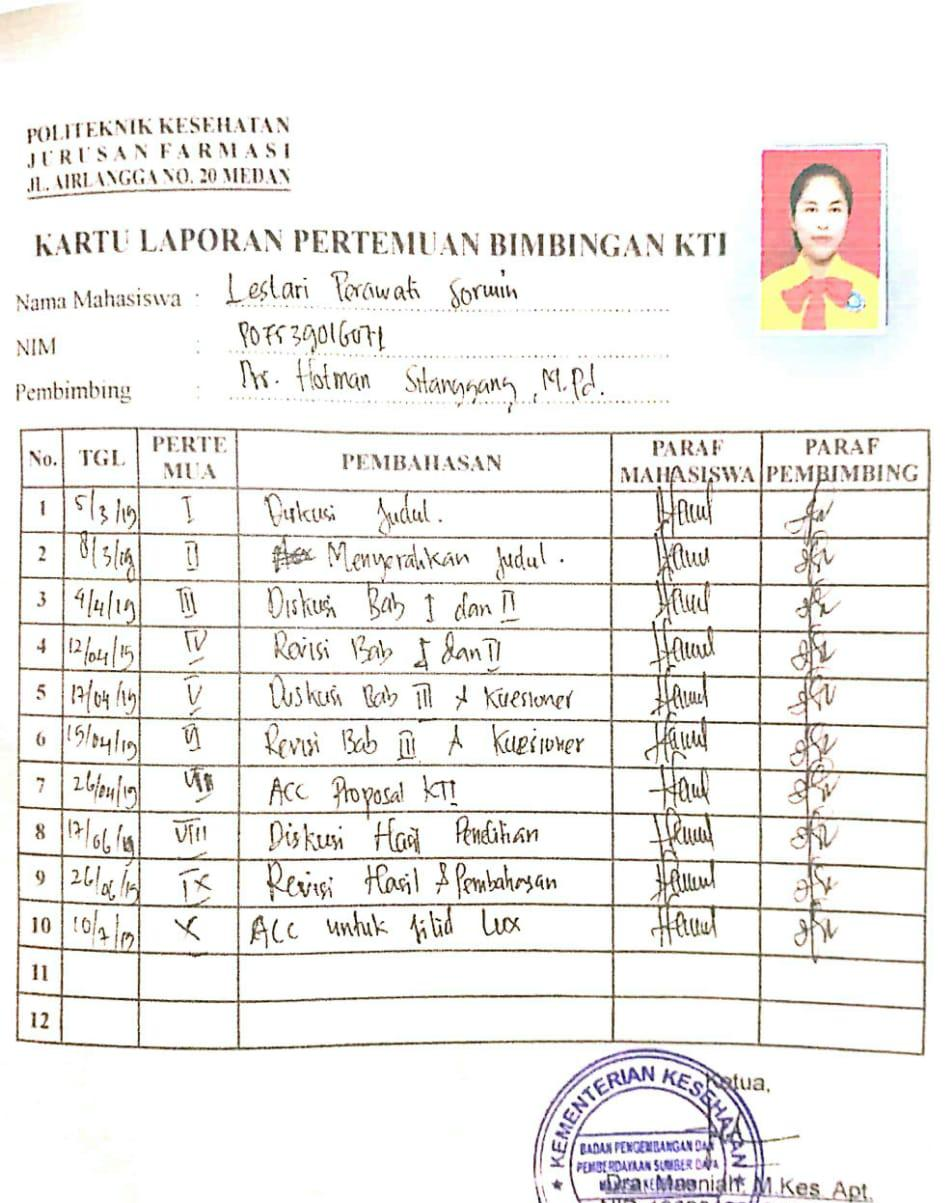 POLITEKNIK KESEHATAN
JURUSAN FARMASI
JL. AIRLANGGA NO. 20 MEDAN
KARTU LAPORAN PERTEMUAN BIMBINGAN KTI
Nama Mahasiswa : Lestari Perawati Sormin
NIM : P07539016071
Pembimbing : Drs. Hotman Sitanggang, M.Pd.
No. TGL PERTE MUA PEMBAHASAN PARAF MAHASISWA PARAF PEMBIMBING
1 5/3/19 I Diskusi Judul.
2 8/3/19 II Menyerahkan Judul.
3 9/4/19 III Diskusi Bab I dan II
4 12/04/19 IV Revisi Bab I dan II
5 17/04/19 V Diskusi Bab III & Kuesioner
6 19/04/19 VI Revisi Bab III & Kuesioner
7 26/04/19 VII ACC Proposal KTI
8 17/06/19 VIII Diskusi Hasil Penelitian
9 26/06/19 IX Revisi Hasil & Pembahasan
10 10/7/19 X ACC untuk jilid Lux
11
12
Ketua,
KEMENTERIAN KESEHATAN
BADAN PENGEMBANGAN DAN
PEMBERDAYAAN SUMBER DAYA
Dra. Masniah, M.Kes, Apt.